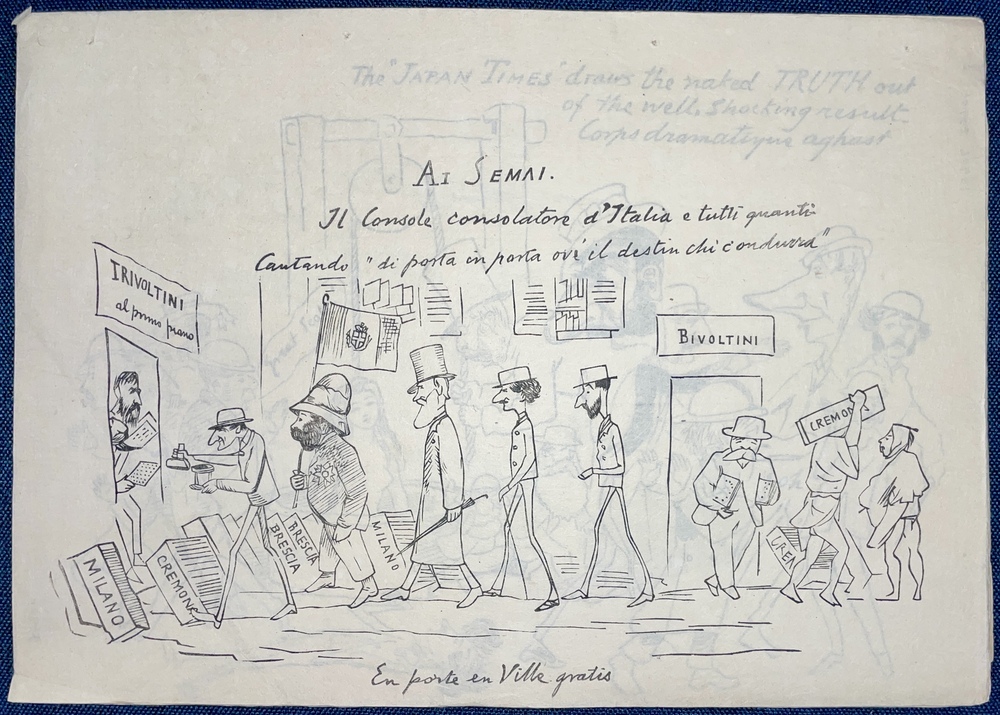 The "JAPAN TIMES" draws the naked TRUTH out
of the well. Shocking result
Corps dramatique aghast
AI SEMAI.
Il Console consolatore d'Italia e tutti quanti
Cantando "di porta in porta ove il destin chi condurrà"
TRIVOLTINI
al primo piano
BIVOLTINI
CREMON
BRESCIA
BRESCIA
MILANO
CREMONA
MILANO
CREM
En porte en Ville gratis